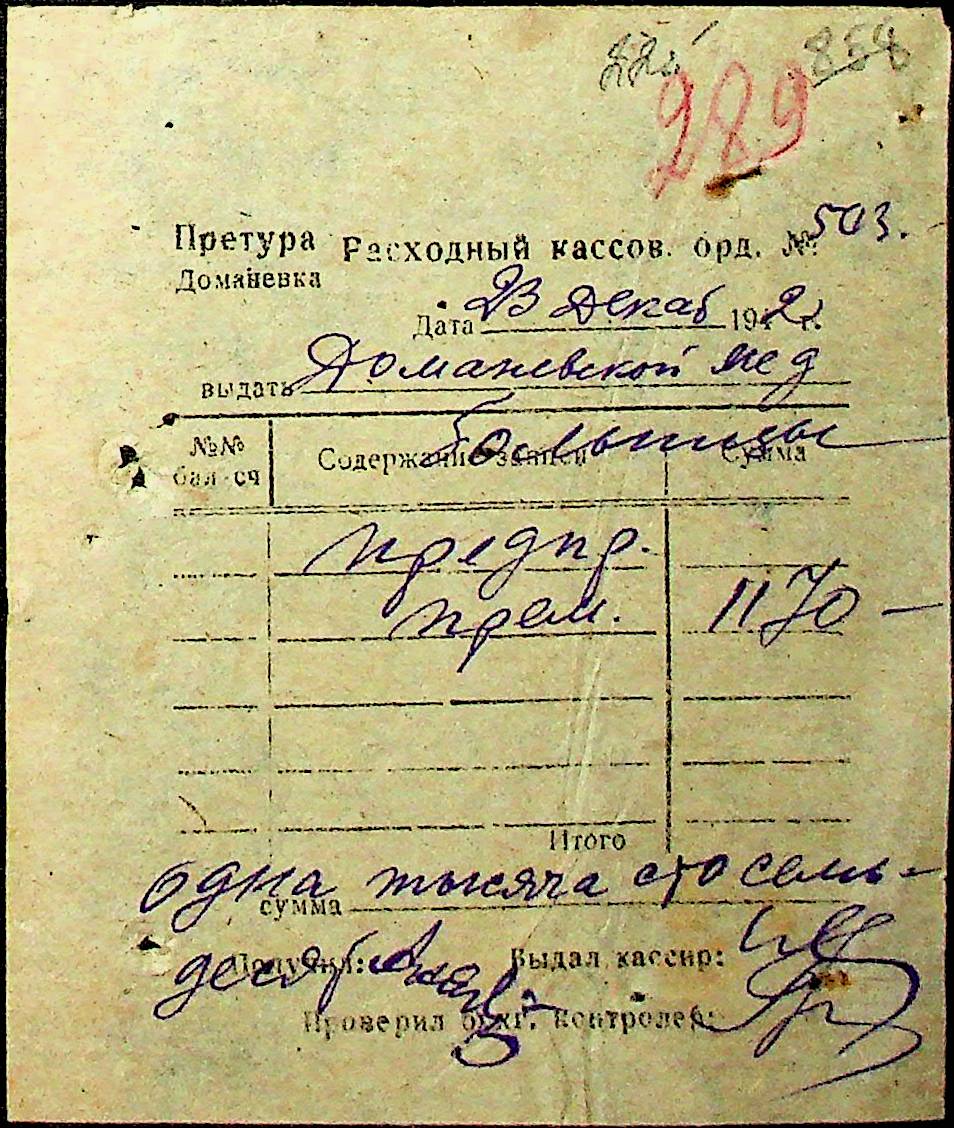 858
289
Претура Расходный кассов. орд. № 503.
Доманевка
Дата 23 Декаб 1942 г.
выдать Доманевской мед
больницы
№№ бал сч Содержание записи Сумма
предпр.
прем. 1170 –
Итого
одна тысяча сто семь-
сумма
десят
Получил: Выдал кассир:
Проверил бухг. контролер: